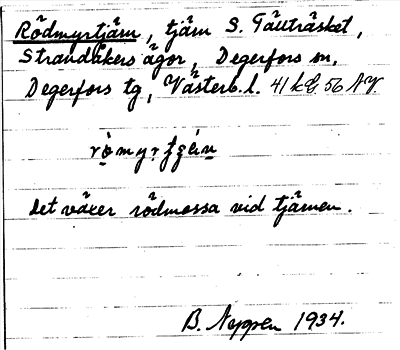 Rödmyrtjärn, tjärn S. Tallträsket,
Strandåkers ägor, Degerfors sn,
Degerfors tg, Västerb. l.
det växer rödmossa vid tjärnen.
B. Nygren 1934.